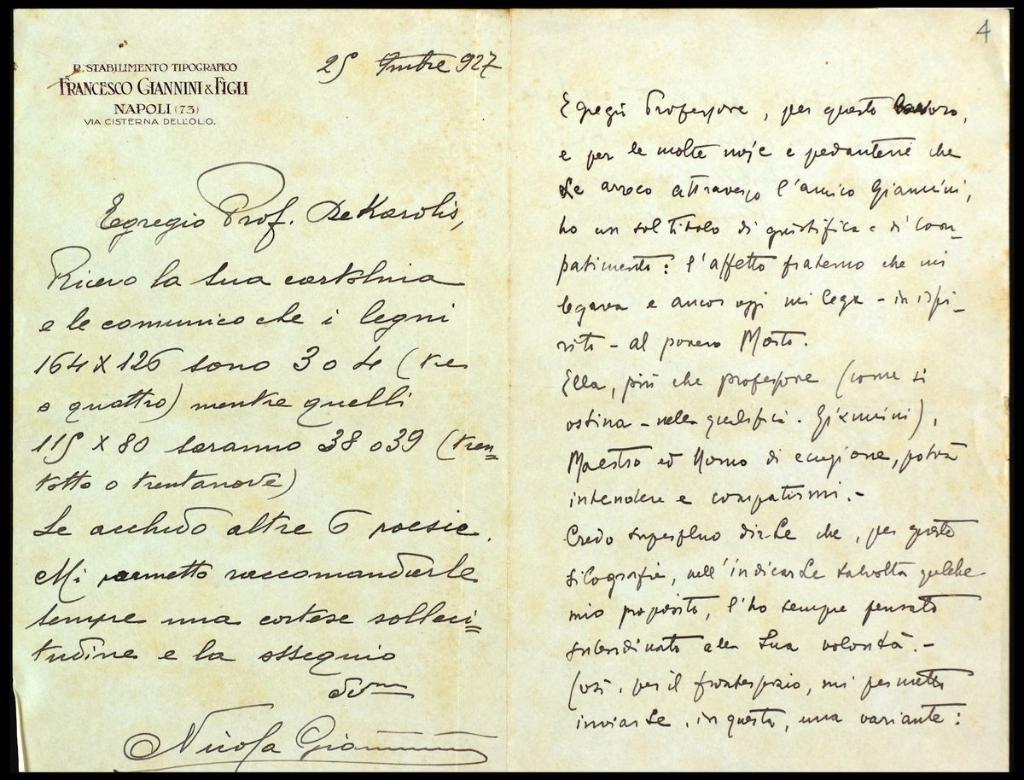 R. STABILIMENTO TIPOGRAFICO
FRANCESCO GIANNINI & FIGLI
NAPOLI (73)
VIA CISTERNA DELL'OLIO.
25 9mbre 927
Egregio Prof. DeKarolis,
Ricevo la sua cartolina
e le comunico che i legni
164 X 126 sono 3 o 4 (tre
o quattro) mentre quelli
115 X 80 saranno 38 o 39 (tren=
totto o trentanove)
Le accludo altre 6 poesie.
Mi permetto raccomandarle
sempre una cortese solleci=
tudine e la ossequio
Nicola Giannini
4
Egregio Professore, per questo lavoro,
e per le molte noje e pedanterie che
Le arreco attraverso l'amico Giannini,
ho un sol titolo di giustifica e di com-
patimento: l'affetto fraterno che mi
legava e ancor oggi mi lega - in ispi-
rito - al povero
Ella, più che professore (come si
ostina - nella qualifica - Giannini),
Maestro ed Uomo di eccezione, potrà
intendere e compatirmi.-
Credo superfluo dirLe che, per queste
silografie, nell'indicarLe talvolta qualche
mio proposito, l'ho sempre pensato
subordinato alla Sua volontà.-
Così, per il frontespizio, mi permetto
inviarLe, in questa, una variante: